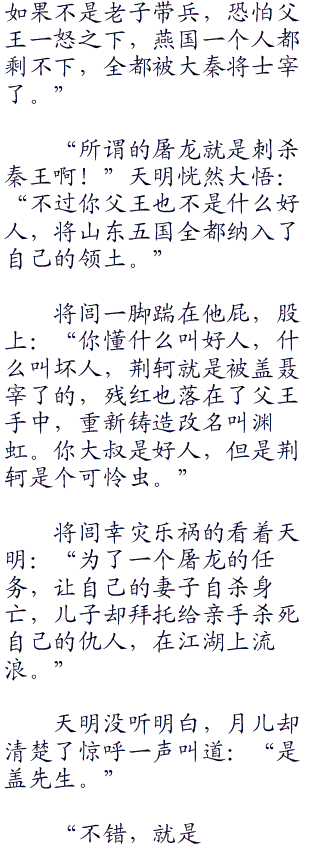 如果不是老子带兵，恐怕父
王一怒之下，燕国一个人都
剩不下，全都被大秦将士宰
了。”
“所谓的屠龙就是刺杀
秦王啊！”天明恍然大悟：
“不过你父王也不是什么好
人，将山东五国全都纳入了
自己的领土。”
将闾一脚踹在他屁，股
上：“你懂什么叫好人，什
么叫坏人，荆轲就是被盖聂
宰了的，残红也落在了父王
手中，重新铸造改名叫渊
虹。你大叔是好人，但是荆
轲是个可怜虫。”
将闾幸灾乐祸的看着天
明：“为了一个屠龙的任
务，让自己的妻子自杀身
亡，儿子却拜托给亲手杀死
自己的仇人，在江湖上流
浪。”
天明没听明白，月儿却
清楚了惊呼一声叫道：“是
盖先生。”
“不错，就是